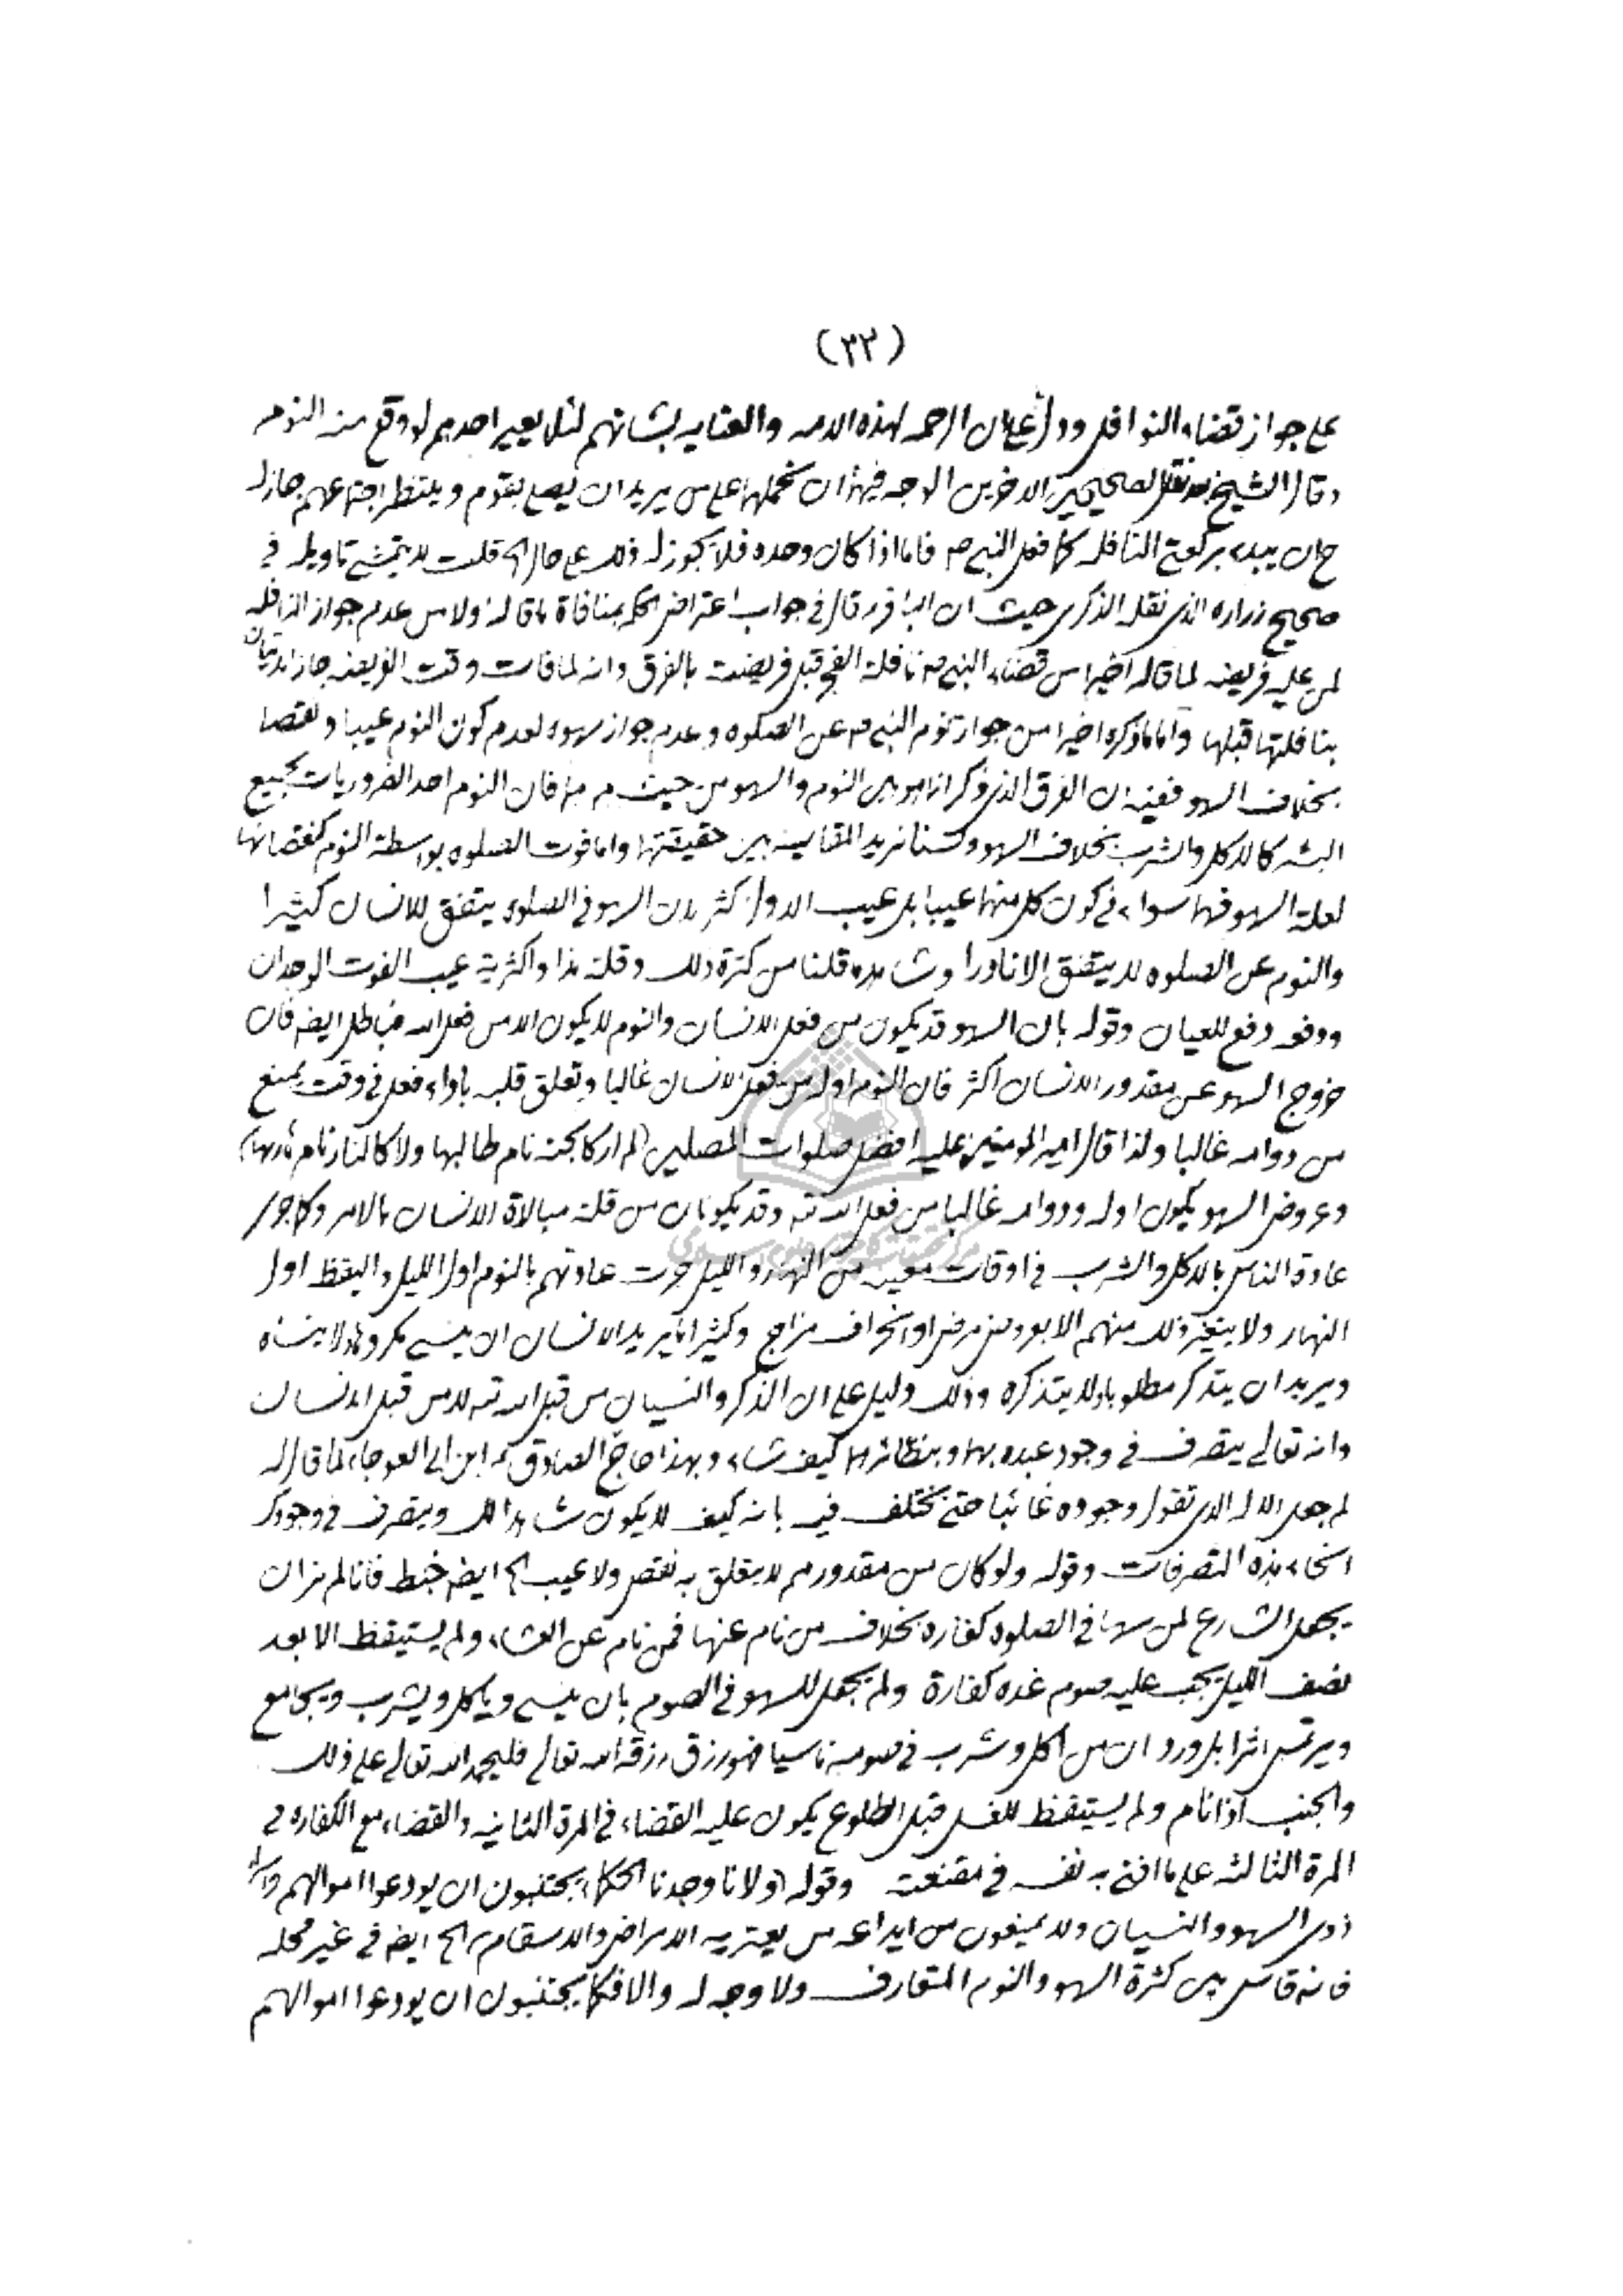 (٣٣)
على جواز قضاء النوافل ودل على ان الرحمه لهذه الامه والعنايه بشانهم لئلا يعير احدهم لو وقع منه النوم
وقال الشيخ بعد نقل الصحيحين الاخرين الوجه فيهما ان نحملها على من يريد ان يصلى بقوم وينتظر اجتماعهم جاز له
ح ان يبدء بركعتى النافله كما فعل النبى ص فاما اذا كان وحده فلا يجوز له ذلك على حال الخ قلت لا يتمشى تاويله فى
صحيح زراره الذى نقله الذكرى حيث ان الباقر ع قال فى جواب اعتراض الحكم بمنافاة ما قاله اولا من عدم جواز النافله
لمن عليه فريضه لما قاله اخيرا من قضاء النبى ص نافلة الفجر قبل فريضته بالفرق وانه لما فات وقت الفريضه جاز الاتيان
بنافلتها قبلها واما ما ذكره اخيرا من جواز نوم النبى ص عن الصلوه وعدم جواز سهوه لعدم كون النوم عيبا ونقصا
بخلاف السهو ففيه ان الفرق الذى ذكر انما هو بين النوم والسهو من حيث هما هما فان النوم احد الضروريات لجميع
البشر كالاكل والشرب بخلاف السهو ولسنا نريد المقايسه بين حقيقتهما واما فوت الصلوه بواسطة النوم كنقصانها
لعلة السهو فهما سواء فى كون كل منهما عيبا بل عيب الاول اكثر لان السهو فى الصلوه يتفق للانسان كثيرا
والنوم عن الصلوه لا يتفق الا نادرا وشاهد ما قلنا من كثرة ذلك وقلة هذا واكثرية عيب الفوت الوجدان
ودفعه دفع للعيان وقوله بان السهو قد يكون من فعل الانسان والنوم لا يكون الا من فعل الله فباطل ايضا فان
خروج السهو عن مقدور الانسان اكثر فان النوم اوله من فعل الانسان غالبا وتعلق قلبه باداء فعل فى وقت يمنع
من دوامه غالبا ولذا قال امير المومنين عليه افضل صلوات المصلين (لم ار كالجنه نام طالبها ولا كالنار نام هاربها)
وعروض السهو يكون اوله ودوامه غالبا من فعل الله تعه وقد يكونان من قلة مبالاة الانسان بالامر وكما جر/
عادة الناس بالاكل والشرب فى اوقات معينه من النهار والليل جرت عادتهم بالنوم اول الليل واليقظه اول
النهار ولا يتغير ذلك منهم الا بعروض مرض او انحراف مزاج وكثيرا ما يريد الانسان ان ينسى مكروها ولا ينساه
ويريد ان يتذكر مطلوبا ولا يتذكره وذلك دليل على ان الذكر والنسيان من قبل الله تعه لا من قبل الانسان
وانه تعالى يتصرف فى وجود عبده بهما وبنظائرهما كيف شاء وبهذا حاج الصادق ع ابن ابى العوجاء لما قال له
لم جعل الاله الذى تقول وجوده غائبا حتى نختلف فيه بانه كيف لا يكون شاهدا لك ويتصرف فى وجودك
انحاء هذه التصرفات وقوله ولو كان من مقدورهم لا يتعلق به نقص ولا عيب الخ ايضا خبط فانا لم نر ان
يجعل الشارع لمن سها فى الصلوه كفاره بخلاف من نام عنها فمن نام عن العشاء ولم يستيقظ الا بعد
نصف الليل يجب عليه صوم غده كفارة ولم يجعل للسهو فى الصوم بان ينسى وياكل ويشرب ويجامع
ويرتمس اثرا بل ورد ان من اكل وشرب فى صومه ناسيا فهو رزق رزقه الله تعالى فليحمد الله تعالى على ذلك
والجنب اذا نام ولم يستيقظ للغسل قبل الطلوع يكون عليه القضاء فى المرة الثانيه والقضاء مع الكفاره فى
المرة الثالثه على ما افتى به نفسه فى مقنعته وقوله (ولانا وجدنا الحكماء يجتنبون ان يودعوا اموالهم واسرارهم
ذوى السهو والنسيان ولا يمنعون من ايداعه من يعتريه الامراض والاسقام) الخ ايضا فى غير محله
فانه قاس بين كثرة السهو والنوم المتعارف ولا وجه له والا فكما يجتنبون ان يودعوا اموالهم